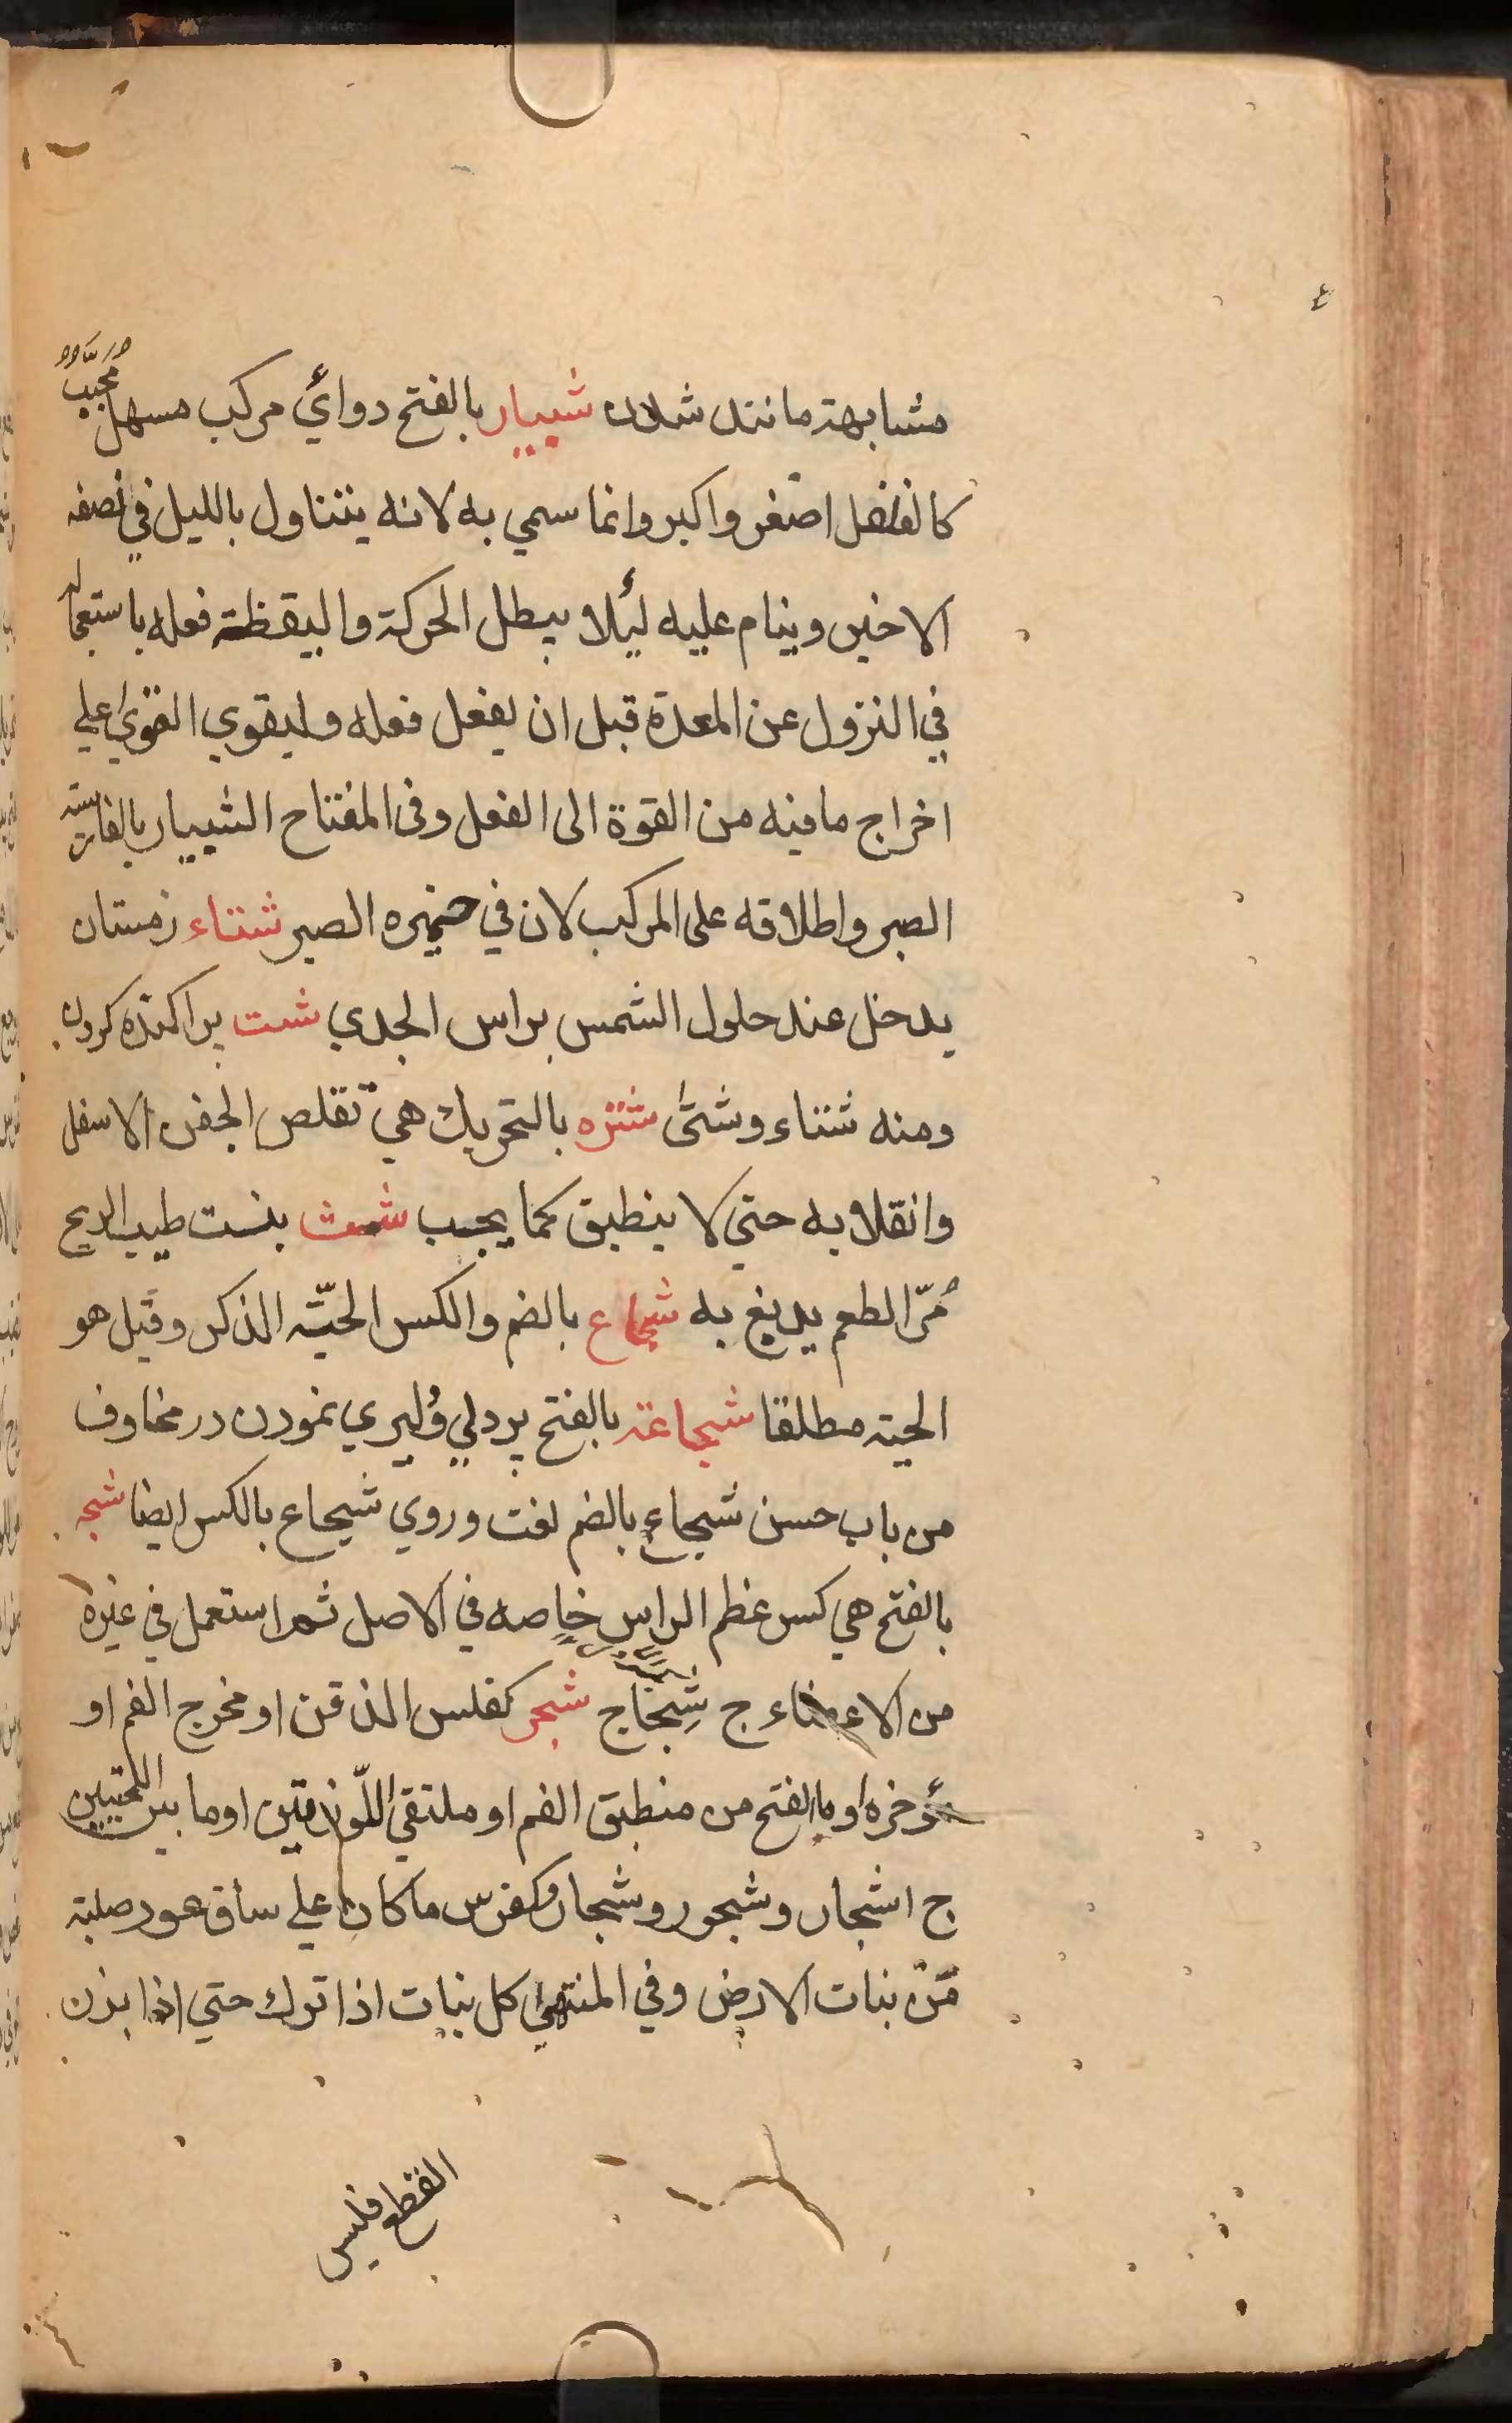 مشابهة مانند شدن شبيار بالفتح دوائي مركب مسهل مُحبّب
كالفلفل اصغر واكبر وانما سمي به لانه يتناول بالليل في نصفه
الاخير وينام عليه لئلا يبطل الحركة واليقظة فعله باستعجاله
في النزول عن المعدة قبل ان يفعل فعله وليقوي القوي علي
اخراج ما فيه من القوة الى الفعل وفى المفتاح الشبيار بالفارسية
الصبر واطلاقه على المركب لان في خميره الصبر شتاء زمستان
يدخل عند حلول الشمس براس الجدي شت پراكنده كردن
ومنه شتاء وشتّى شتره بالتحريك هي تقلص الجفن الاسفل
وانقلابه حتي لا ينطبق كما يجب شث بنت طيب الريح
مُرّ الطعم يدبغ به شجاع بالضم والكسر الحيّة الذكر وقيل هو
الحية مطلقا شجاعة بالفتح پردلي وليري نمودن در مخاوف
من باب حسن شجاع بالضم لغت وروي شجاع بالكسر ايضا شجه
بالفتح هي كسر عظم الراس خاصه في الاصل ثم استعمل في غيره
من الاعضاء ج شِجاج شجر كفلس الذقن او مخرج الفم او
مؤخره او بالفتح من منطبق الفم او ملتقى اللّهزمتين او ما بين اللحيين
ج اشجار وشجور وشجار وكفرس ما كان علي ساق عود صلبة
مّن نبات الارض وفي المنتهي كل نبات اذا ترك حتي اذا بزن